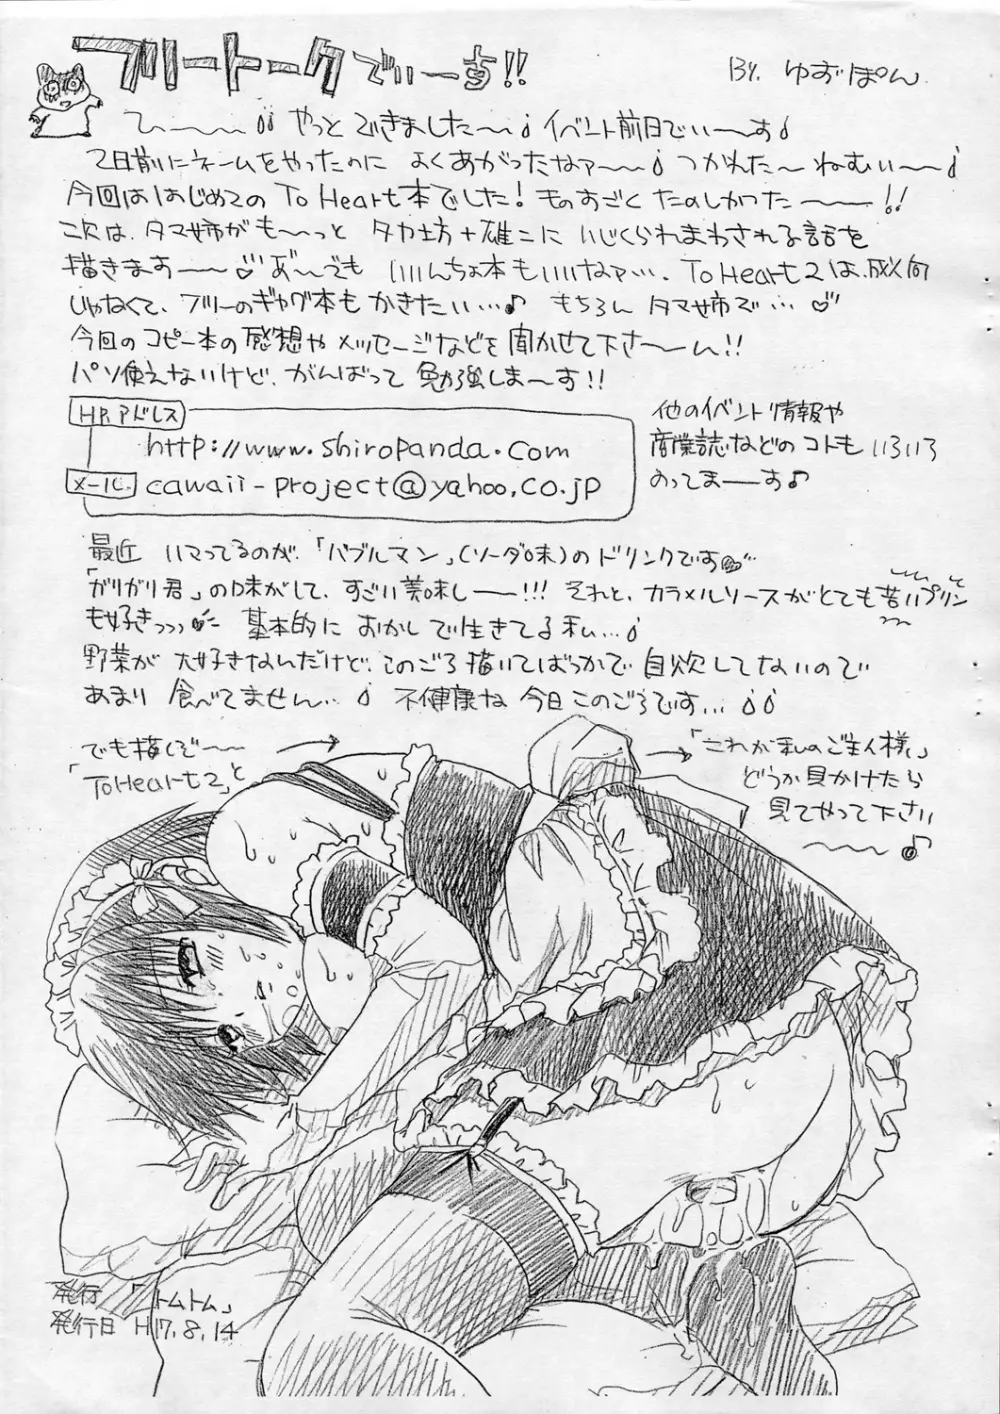 フリートークでぃーす!!
BY. ゆずぽん
ひ〜〜〜 やっとできました〜♪ イベント前日でぃ〜す♪
2日前にネームをやったのに よくあがったなァ〜〜♪ つかれた〜ねむぃ〜〜♪
今回ははじめてのTo Heart本でした! ものすごくたのしかった〜〜!!
次は、タマ姉がも〜〜っと タカ坊+雄二にいじくられまわされる話を
描きます〜〜♡ あ"〜でも いいんちょ本もいいなァ…。To Heart2は、成人向
じゃなくて、フリーのギャグ本もかきたぃ…♪ もちろん タマ姉で…♡
今回のコピー本の感想やメッセージなどを聞かせて下さ〜〜ん!!
パソ使えないけど、がんばって勉強しま〜す!!
HP.アドレス
http://www.shiropanda.com
メール.
cawaii-project@yahoo.co.jp
他のイベント情報や
商業誌などのコトもいろいろ
のってま〜す♪
最近 ハマってるのが、「バブルマン」(ソーダ味)のドリンクです
「ガリガリ君」の味がして、すごい美味し〜〜!!! それと、カラメルソースがとても苦いプリン
も好きっっっ 基本的におかしで生きてる私…♪
野菜が 大好きなんだけど、このごろ描いてばっかで 自炊してないので
あまり食べてません… 不健康な今日このごろです…
でも描くぞ〜〜
「ToHeart2」と
→「これが私のご主人様」
どうか見かけたら
見てやって下さい
〜〜〜♪
発行 「トムトム」
発行日 H17.8.14